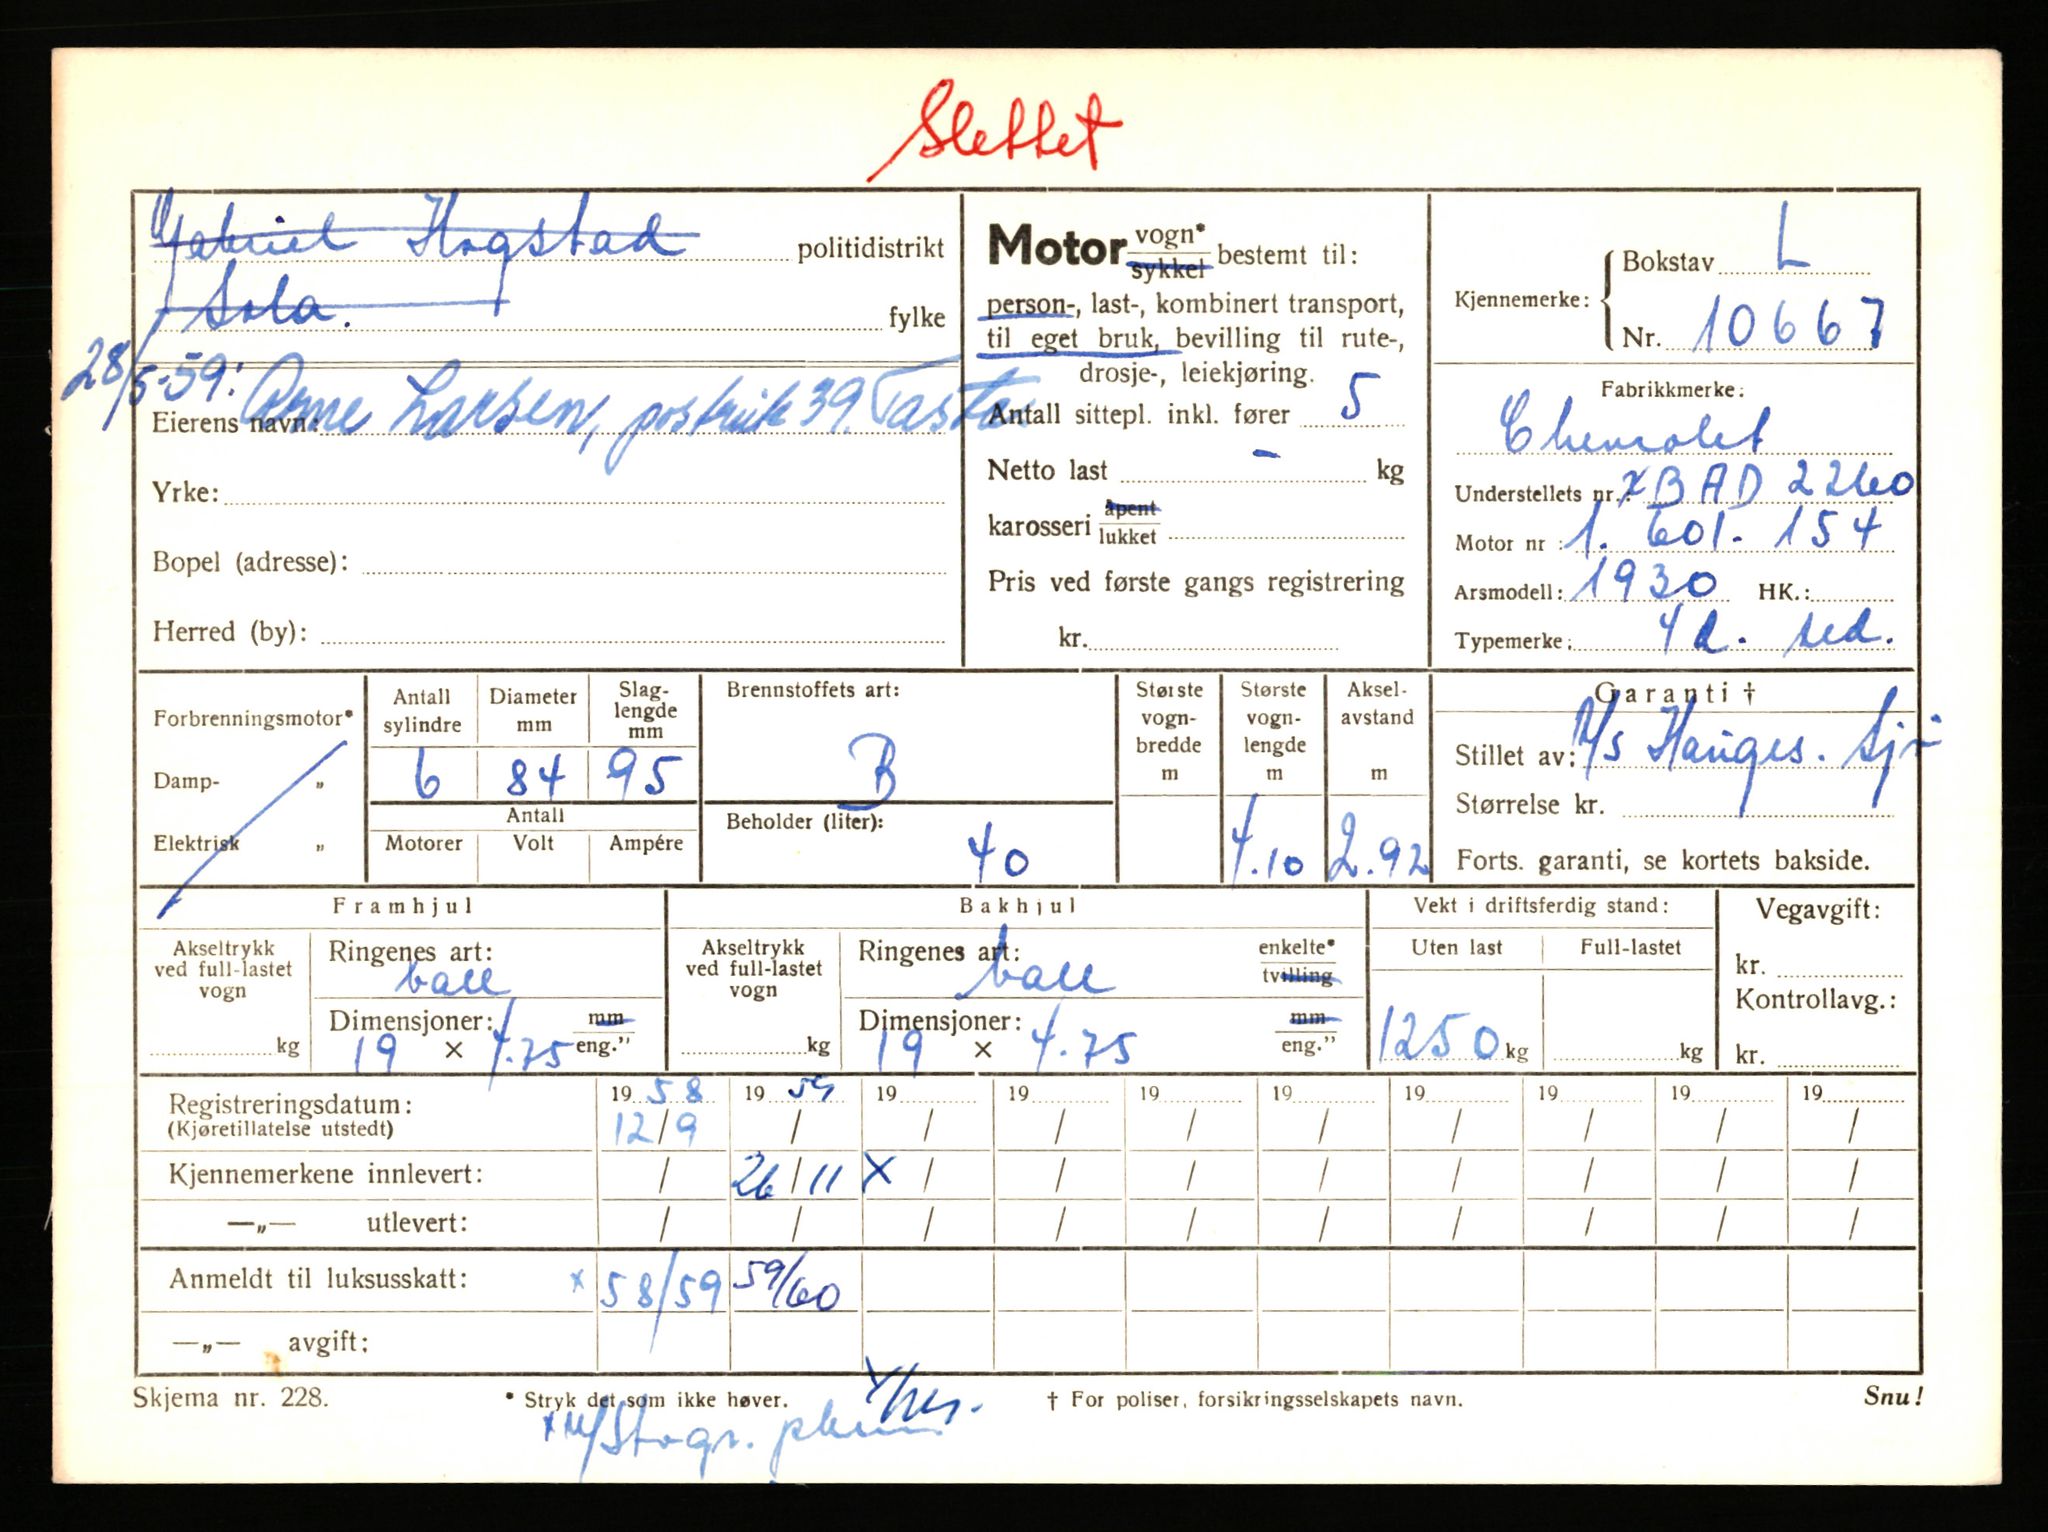 Slettet
Gabriel Hogstad politidistrikt
Sola. fylke
28/5-59: Arne Larsen, postruk 39. Tasta
Eierens navn:
Yrke:
Bopel (adresse):
Herred (by):
Motor vogn* sykkel bestemt til:
person-, last-, kombinert transport,
til eget bruk, bevilling til rute-,
drosje-, leiekjøring.
Antall sittepl. inkl. fører 5
Netto last - kg
karosseri åpent lukket
Pris ved første gangs registrering
kr.
Kjennemerke: Bokstav L
Nr. 10667
Fabrikkmerke:
Chevrolet
Understellets nr.: xBAD 2260
Motor nr : 1. 601. 154
Arsmodell: 1930 HK.:
Typemerke: 4 d. sed.
Forbrenningsmotor*
Damp- „
Elektrisk „
Antall sylindre Diameter mm Slag-lengde mm
6 84 95
Antall
Motorer Volt Ampére
Brennstoffets art:
B
Beholder (liter):
40
Største vogn-bredde m
Største vogn-lengde m
4.10
Aksel-avstand m
2.92
Garanti †
Stillet av: A/s Hauges. Sjø
Størrelse kr.
Forts. garanti, se kortets bakside.
Framhjul
Akseltrykk ved full-lastet vogn
kg
Ringenes art:
ball
Dimensjoner: mm
19 x 4.75 eng."
Bakhjul
Akseltrykk ved full-lastet vogn
kg
Ringenes art: enkelte* tvilling
ball
Dimensjoner: mm
19 x 4.75 eng."
Vekt i driftsferdig stand:
Uten last Full-lastet
1250 kg kg
Vegavgift:
kr.
Kontrollavg.:
kr.
Registreringsdatum: 19 58 19 59 19 19 19 19 19 19 19 19
(Kjøretillatelse utstedt) 12/9 / / / / / / / / /
Kjennemerkene innlevert: / 26/11 x / / / / / / / /
—„— utlevert: / / / / / / / / / /
Anmeldt til luksusskatt: x 58/59 59/60
—„— avgift:
Skjema nr. 228. * Stryk det som ikke høver. † For poliser, forsikringsselskapets navn. Snu!